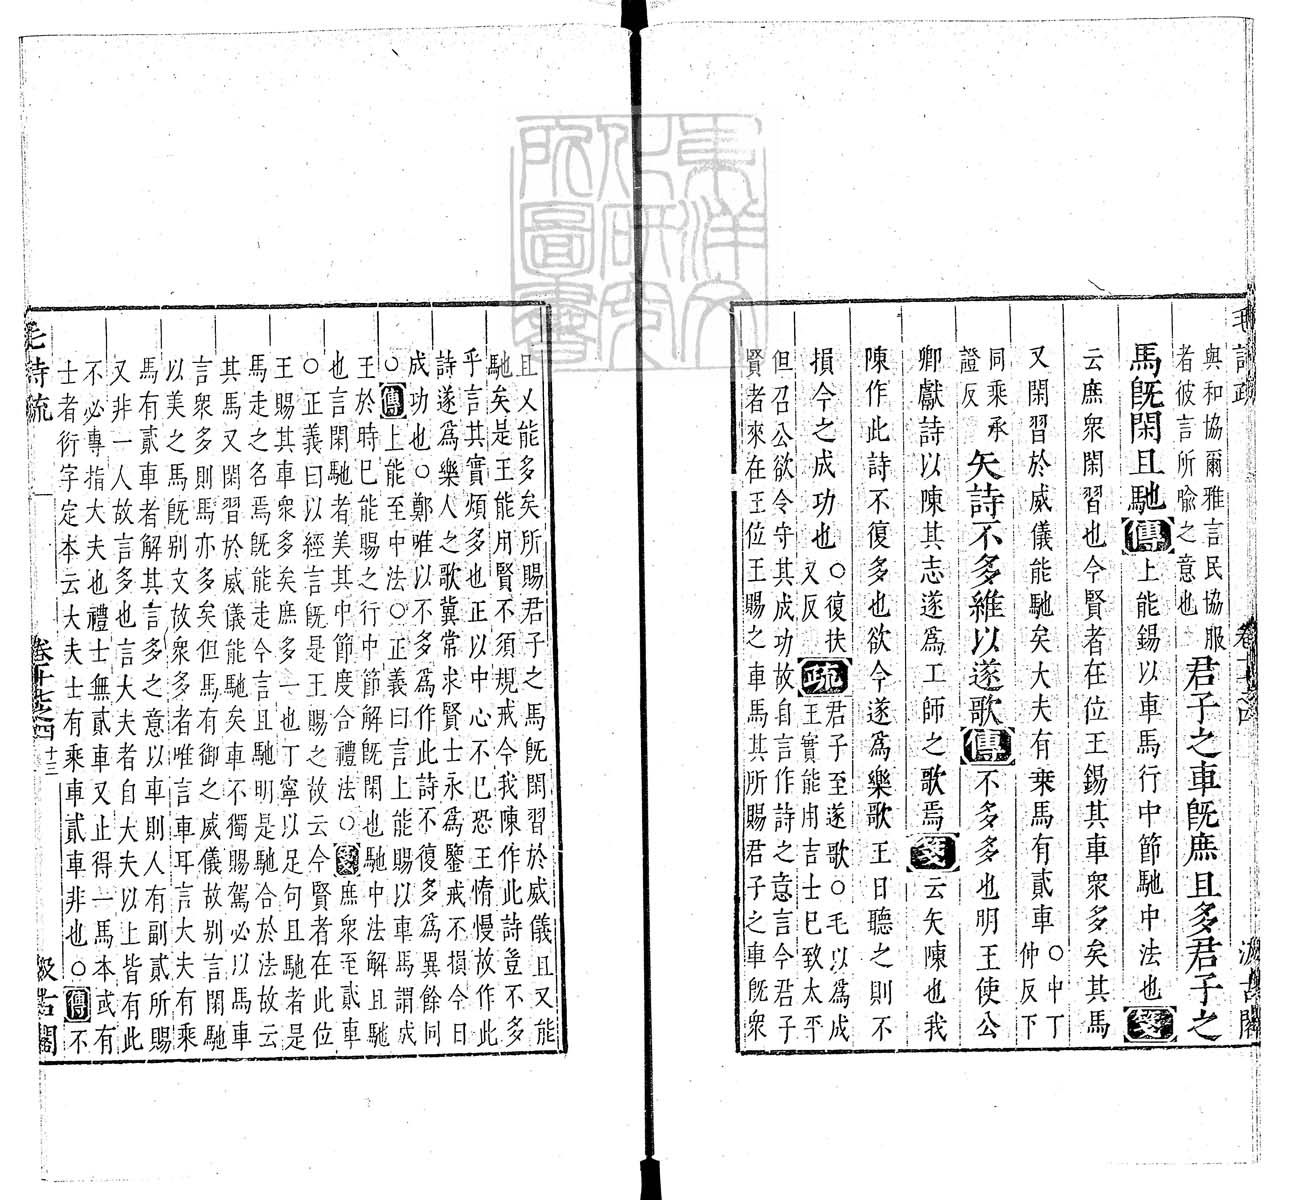 毛詩疏
卷十七之四
汲古閣
與和協爾雅言民協服
者彼言所喩之意也
君子之車旣庶且多君子之
馬旣閑且馳傳上能錫以車馬行中節馳中法也箋
云庶衆閑習也今賢者在位王錫其車衆多矣其馬
又閑習於威儀能馳矣大夫有乗馬有貳車
○中丁
仲反下
同乘承
證反
矢詩不多維以遂歌傳不多多也明王使公
卿獻詩以陳其志遂爲工師之歌焉箋云矢陳也我
陳作此詩不復多也欲今遂爲樂歌王日聽之則不
損今之成功也
○復扶
又反
疏
君子至遂歌○毛以爲成
王實能用吉士已致太平
但召公欲令守其成功故自言作詩之意言今君子
賢者來在王位王賜之車馬其所賜君子之車旣衆
且乂能多矣所賜君子之馬旣閑習於威儀且又能
馳矣是王能用賢不須規戒今我陳作此詩豈不多
乎言其實煩多也正以中心不已恐王惰慢故作此
詩遂爲樂人之歌冀常求賢士永爲鑒戒不損今日
成功也○鄭唯以不多爲作此詩不復多爲異餘同
○傳上能至中法○正義曰言上能賜以車馬謂成
王於時已能賜之行中節解旣閑也馳中法解且馳
也言閑馳者美其中節度合禮法○箋庶衆至貳車
○正義曰以經言旣是王賜之故云今賢者在此位
王賜其車衆多矣庶多一也丁寧以足句且馳者是
馬走之名焉旣能走今言且馳明是馳合於法故云
其馬又閑習於威儀能馳矣車不獨賜駕必以馬車
言衆多則馬亦多矣但馬有御之威儀故别言閑馳
以美之馬旣别文故衆多者唯言車耳言大夫有乘
馬有貳車者解其言多之意以車則人有副貳所賜
又非一人故言多也言大夫者自大夫以上皆有此
不必專指大夫也禮士無貳車又止得一馬本或有
士者衍字定本云大夫士有乘車貳車非也○傳不
毛詩疏
卷十七之四
十三
汲古閣
東洋文化研究所圖書